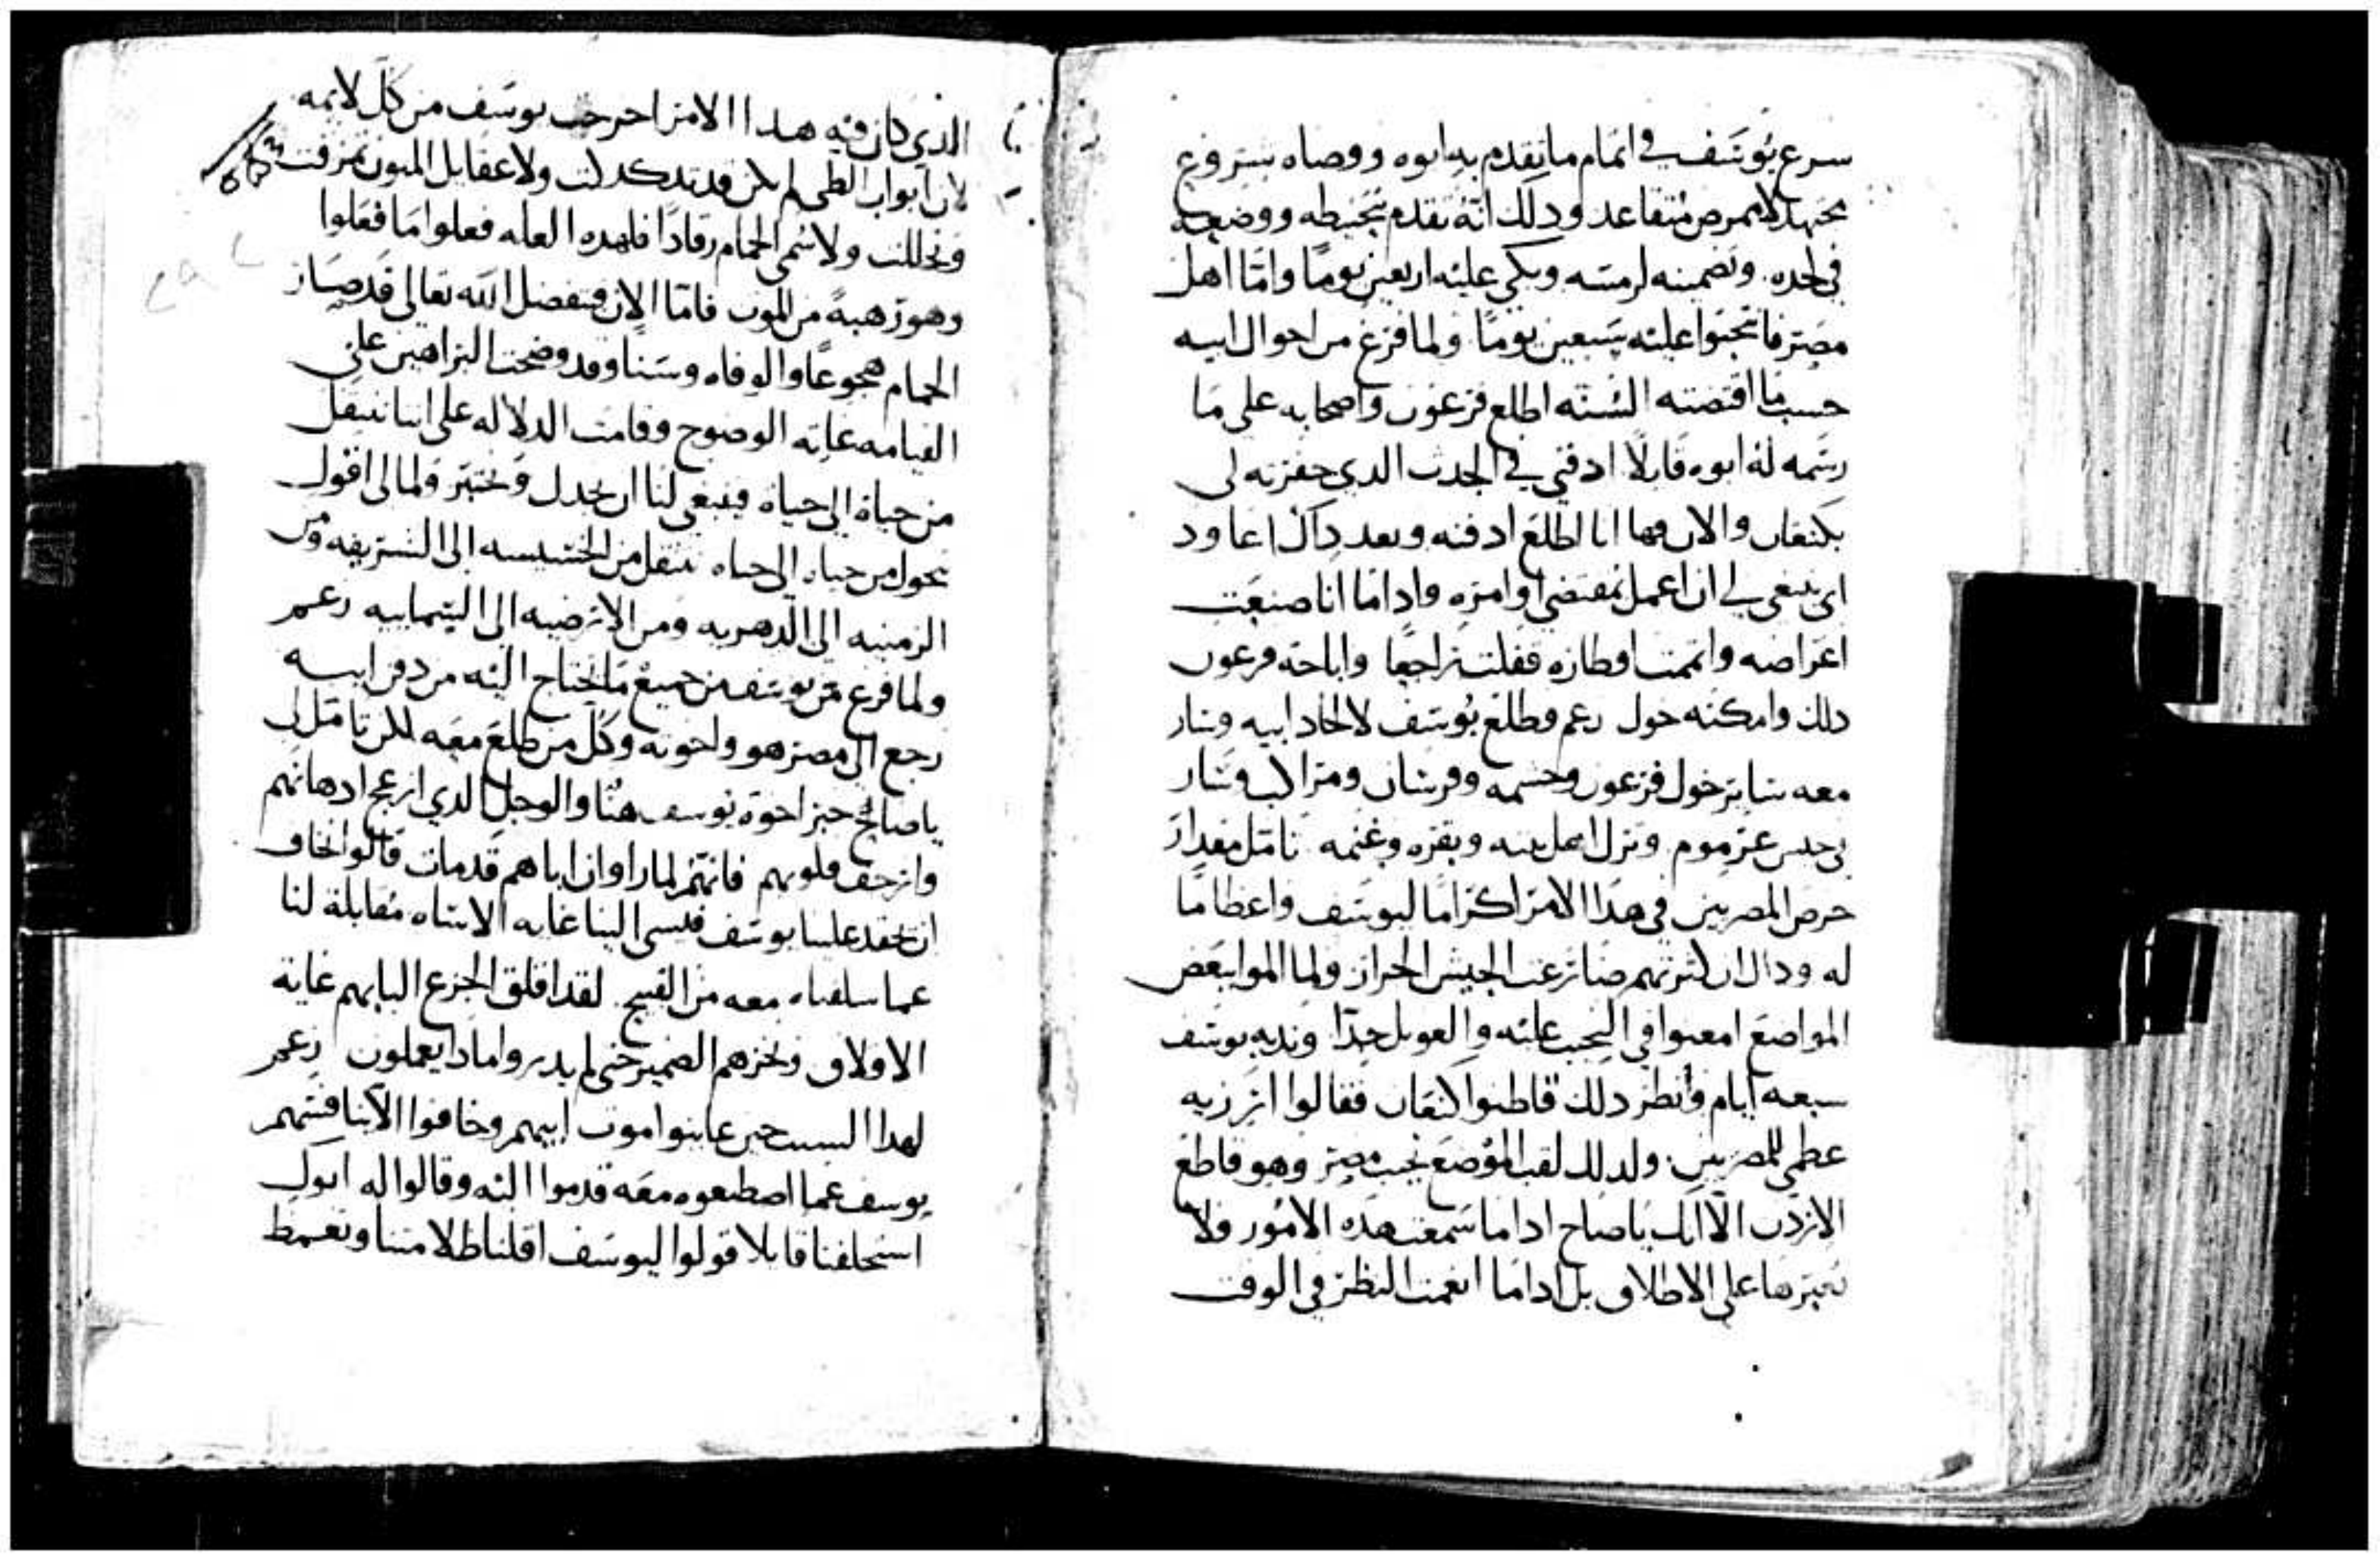 سرع يوسف في اتمام ما تقدم به ابوه ووصاه بتروع
مجتهد لا كمرض متقاعد ودلك انه تقدم بتحنيطه ووضعه
في لحده وتضمينه لرمسه وبكى عليه اربعين يومًا وامّا اهل
مصر فانتحبوا عليه سبعين يومًا ولما فرغ من احوال ابيه
حسب ما اقتضته السنه اطلع فرعون واصحابه على ما
رسمه له ابوه قايلًا ادفني في الجدث الدي حفرته لي
بكنعان والان فها انا اطلع ادفنه وبعد داك اعاود
اي ينبغي لي ان اعمل بمقتضى اوامره وادا ما انا صنعت
اغراضه واتممت اوطاره قفلت راجعًا واباحه فرعون
دلك وامكنه حول زعم وطلع يوسف لالحاد ابيه وسار
معه ساير خول فرعون وحشمه وفرسان ومراكب وسار
في جيش عرموم ونزل اهل بيته وبقره وغنمه تامل مقدار
حرص المصريين في هدا الامر اكرامًا ليوسف واعظامًا
له ودال ان لكثرتهم ضارعت الجيش الجرار ولما الموا بعض
المواضع امعنوا في النحيب عليه والعويل جدًا وندبه يوسف
سبعه ايام وانظر دلك قاطنوا كنعان فقالوا ان رزيه
عظمى للمصريين ولدلك لقب الموضع نحيب مصر وهو قاطع
الاردن الا انك يا صاح ادا ما سمعت هده الامور فلا
تعبرها على الاطلاق بل ادا ما انعمت النظر في الوقت
الدي كان فيه هدا الامر اخرجت يوسف من كل لايمه
لان ابواب الظى لم يكن قد تدكدكت ولا عقايل المنون تمزقت
وتحللت ولا سمي الحمام رقادًا فلهده العله فعلوا ما فعلوا
وهو رهبةً من الموت فامّا الان فبفضل الله تعالى قد صار
الحمام هجوعًا والوفاه وسنا وقد وضحت البراهين على
القيامه غايه الوضوح وقامت الدلاله على اننا ننتقل
من حياة الى حياه فينبغي لنا ان نجدل ونحتبر ولما لي اقول
نحول من حياه الى حياه ننتقل من الخسيسه الى الشريفه ومن
الزمنيه الى الدهريه ومن الارضيه الى السماييه زعم
ولما فرغ يوسف من جميع ما يحتاج اليه من دفن ابيه
رجع الى مصر هو واخوته وكل من طلع معه لكن تامل لي
يا صالح حبر اخوة يوسف هنا والوجل الدي ازعج ادهانهم
وازحف قلوبهم فانهم لما راوا ان اباهم قد مات قالوا نخاف
ان يحقد علينا يوسف فيسي الينا غايه الاساه مقابلة لنا
عما سلفناه معه من القبيح لقد اقلق الجزع البابهم غاية
الاقلاق ونخزهم الضمير حتى لم يدروا مادا يعملون زعم
لهدا السبب حين عاينوا موت ابيهم وخافوا الا ينافسهم
يوسف عما اصطنعوه معه قدموا اليه وقالوا له ابوك
استحلفنا قايلا قولوا ليوسف اقلنا ظلامتنا وتغمط